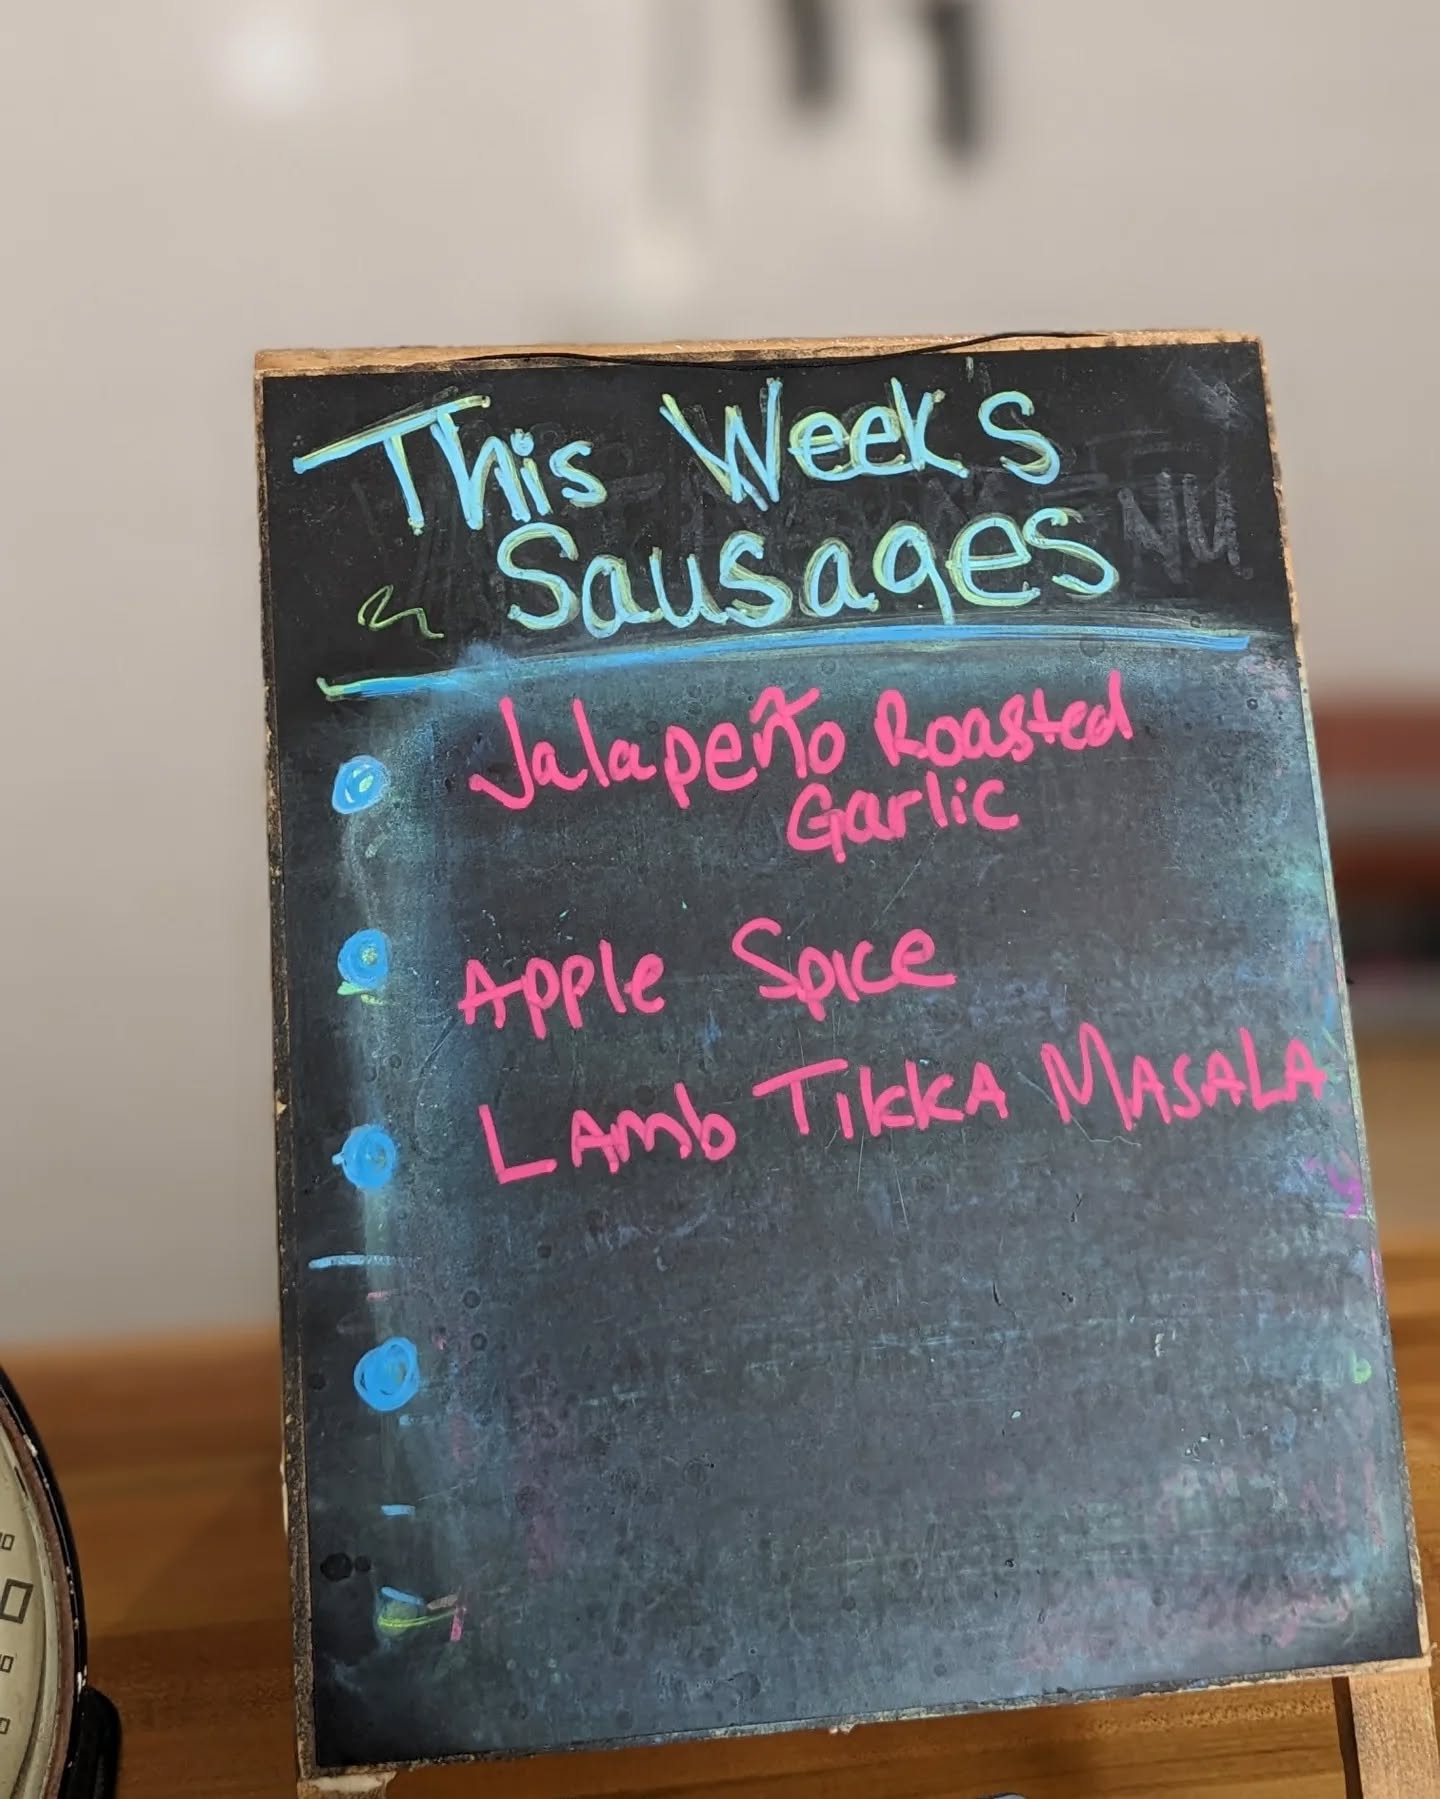 This Week's
Sausages
Jalapeño Roasted
Garlic
Apple Spice
Lamb Tikka Masala